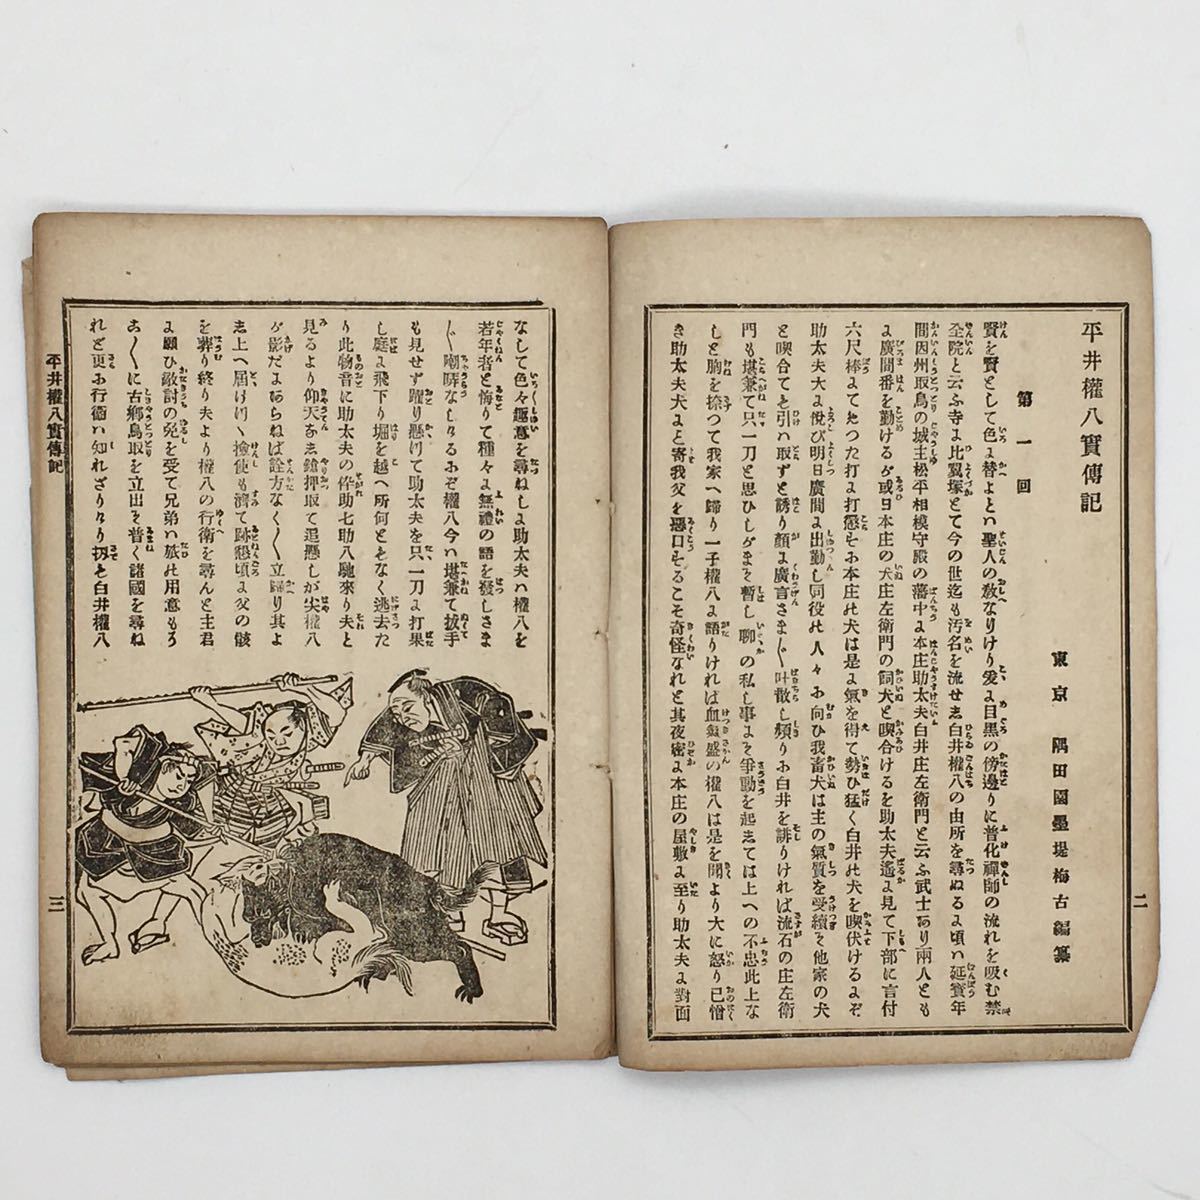 平井權八實傳記
東京 隅田園墨堤梅古編纂
第一回
賢を賢として色に替よとハ聖人の教なりけり爰に目黒の傍邊りに普化禪師の流れを吸む禁
全院と云ふ寺に比翼塚とて今の世迄も汚名を流せし白井權八の由所を尋ぬるに頃ハ延寳年
間因州取鳥の城主松平相模守殿の藩中に本庄助太夫白井庄左衛門と云ふ武士あり兩人とも
に廣間番を勤けるが或日本庄の犬庄左衛門の飼犬と喫合けるを助太夫遙に見て下部に言付
六尺棒にてたつた打に打懲せバ本庄の犬は是に氣を得て勢ひ猛く白井の犬を喫伏けるにぞ
助太夫大に悅び明日廣間に出勤し同役の人々に向ひ我畜犬は主の氣質を受續ぎ他家の犬
と喫合ても引ハ取ずと誇り顔に廣言さまじく叶散し頻りに白井を誹りければ流石の庄左衛
門も堪兼て只一刀と思ひしがまて暫し聊の私し事にて爭動を起しては上への不忠此上な
しと胸を捺つて我家へ歸り一子權八に語りければ血氣盛の權八は是を聞より大に怒り己憎
き助太夫犬にと寄我父を惡口するこそ奇怪なれと其夜密に本庄の屋敷に至り助太夫に對面
二
なして色々趣意を尋ねしに助太夫ハ權八を
若年者と侮りて種々に無禮の語を發しさま
じく嘲哢なしけるにぞ權八今ハ堪兼て拔手
も見せず躍り懸つて助太夫を只一刀に打果
し庭に飛下り堀を越へ何ともなく逃去た
り此物音に助太夫の伜助七助八馳來り夫と
見るより仰天なし鎗押取て追懸しが尖權八
が影だにあらねば詮方なく〳〵立歸り其よ
し上へ屆けけハ檢使も濟て跡懇頃に父の骸
を葬り終り夫より權八の行衛を尋んと主君
に願ひ敵討の免を受て兄弟ハ旅の用意もろ
こ〳〵に古鄕鳥取を立出で普く諸國を尋ね
れど更に行衛ハ知れざりけり扨も白井權八
平井權八實傳記
三